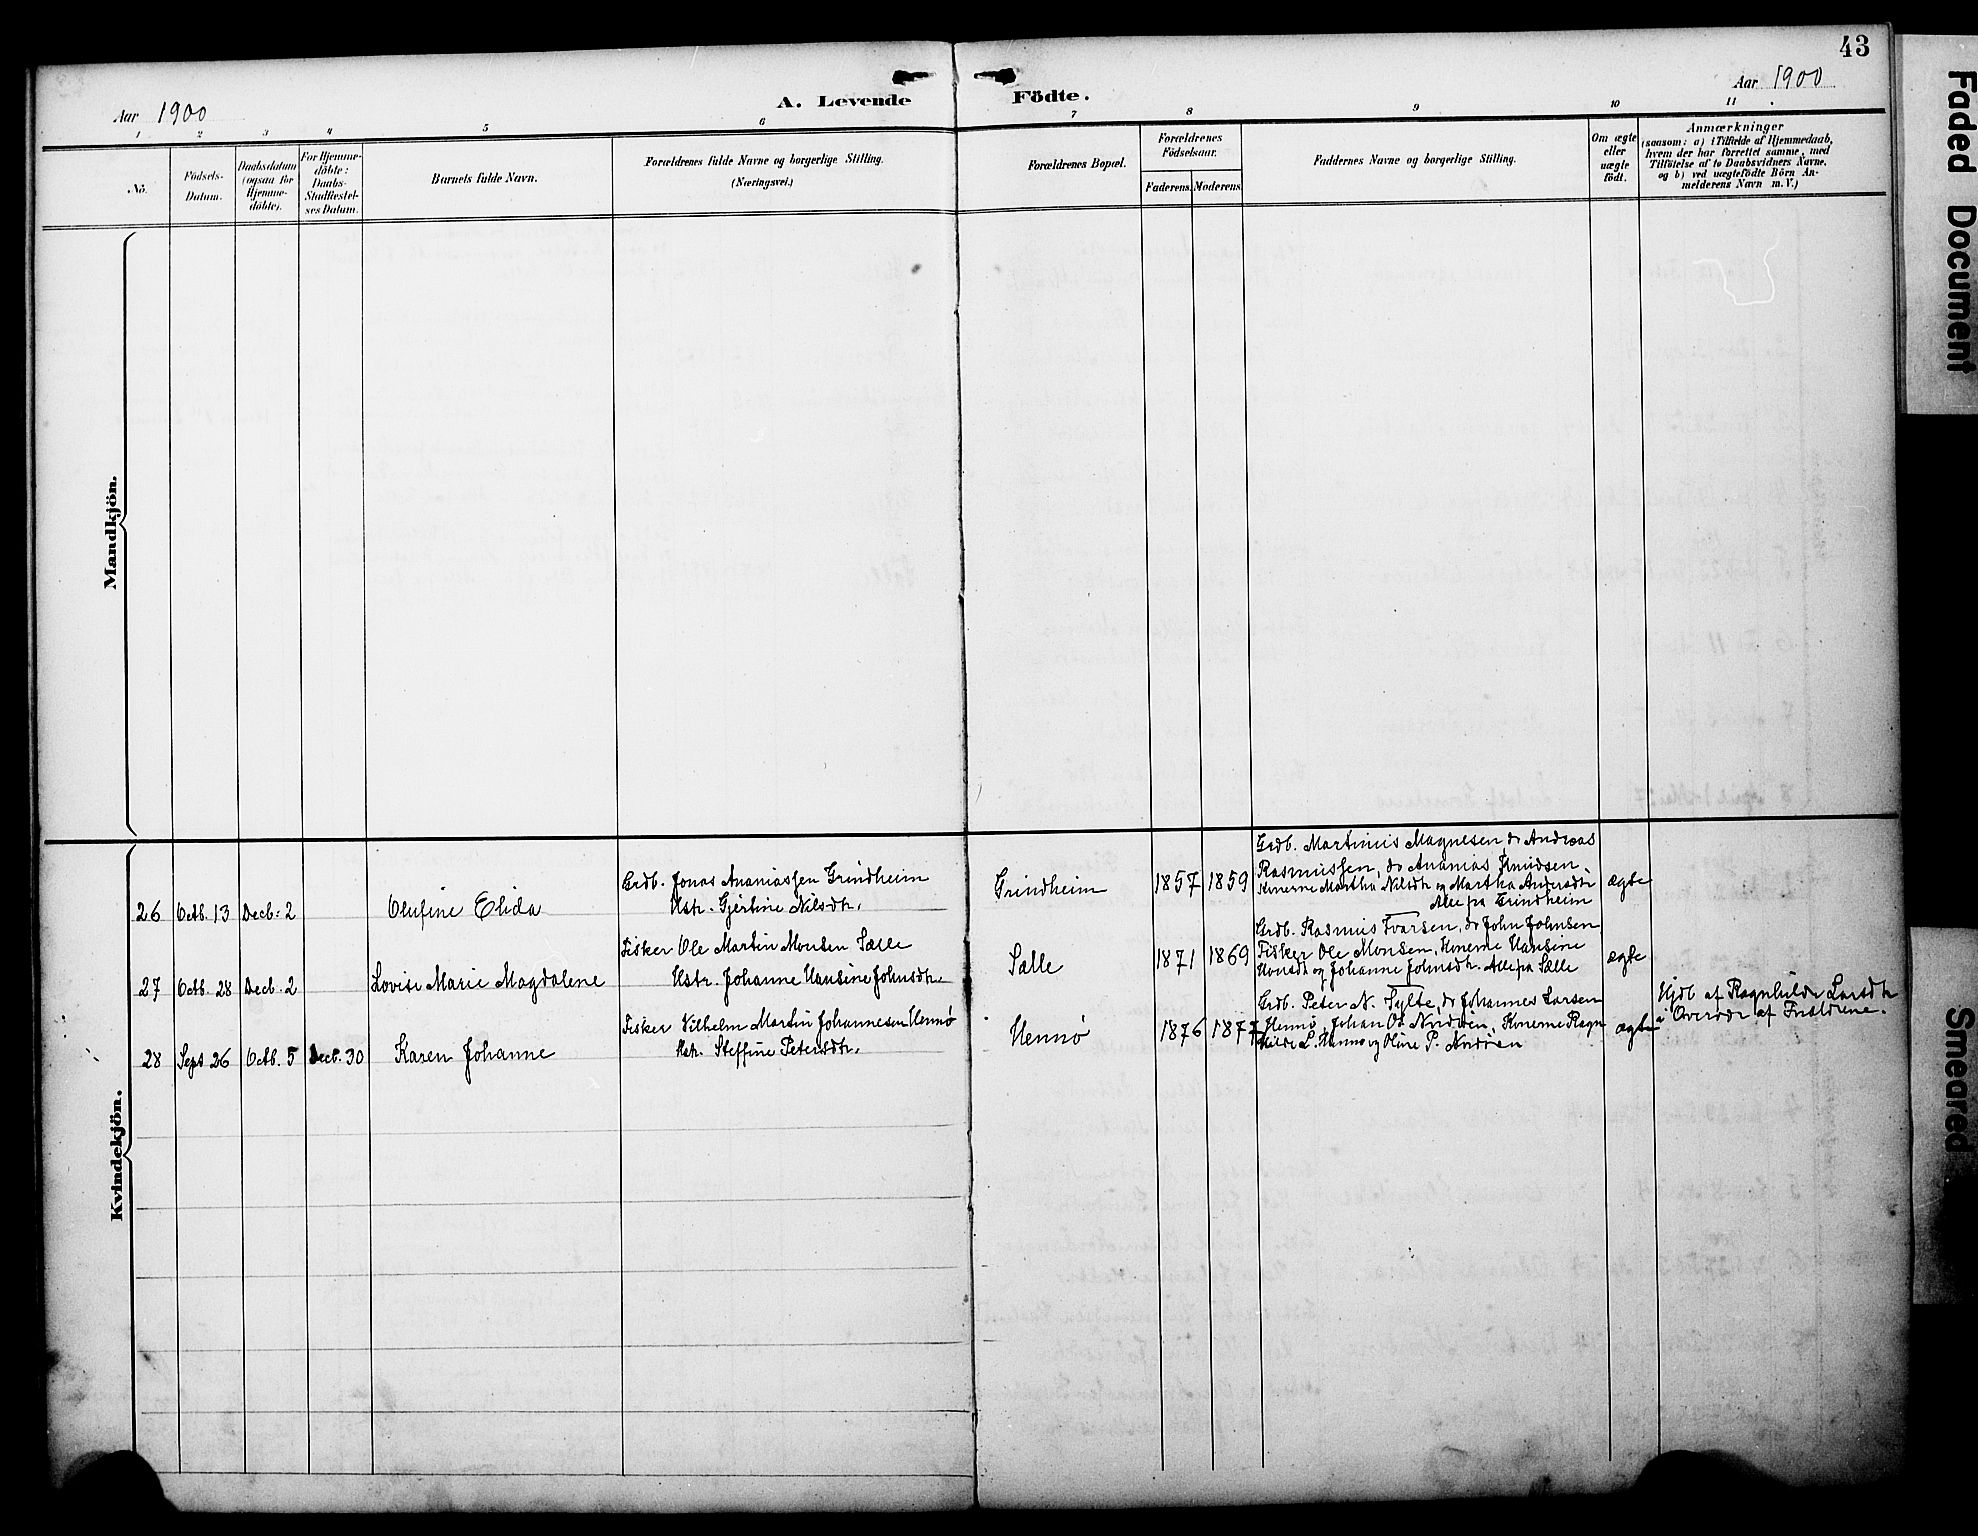 43
Aar 1900
A. Levende Födte.
Aar 1900
1 2 3 4 5 6 7 8 9 10 11
No.
Födsels-
Datum.
Daabsdatum
(ogsaa for
Hjemme-
döbte).
For Hjemme-
döbte:
Daabs-
Stadfæstel-
ses Datum.
Barnets fulde Navn.
Forældrenes fulde Navne og borgerlige Stilling.
(Næringsvei.)
Forældrenes Bopæl.
Forældrenes
Födselsaar.
Faderens. Moderens.
Faddernes Navne og borgerlige Stilling.
Om ægte
eller
uægte
födt.
Anmærkninger
(saasom: a) i Tilfælde af Hjemmedaab,
hvem der har forrettet samme, med
Tilföielse af to Daabsvidners Navne,
og b) ved uægtefödte Börn An-
melderens Navn m. V.)
Mandkjön.
Kvindekjön.
26 Octb. 13 Decb. 2
Olufine Elida
Grdb. Jonas Ananiassen Grindheim
Hstr. Gjertine Nilsdtr.
Grindheim
1857 1859
Grdb. Martinius Magnesen, do Andreas
Rasmussen, do Ananias Knudsen,
Konerne Martha Nilsdtr og Martha Andersdtr
Alle fra Grindheim
ægte
27 Octb. 28 Decb. 2
Lovise Marie Magdalene
Fisker Ole Martin Monsen Sælle
Hstr. Johanne Hansine Johnsdtr.
Sælle
1871 1869
Grdb. Rasmus Ivarsen, do John Johnsen
Fisker Ole Monsen, Konerne Hansine
Monsdtr og Johanne Johnsdtr. Alle fra Sælle
ægte
28 Sept 26 Octb. 5 Decb. 30
Karen Johanne
Fisker Vilhelm Martin Johannesen Hennø
Hstr. Steffine Petersdtr.
Hennø
1876 1877
Grdb. Peter N. Sylte, do Johannes Larsen
Hennø, Johan Ol. Nordøen, Konerne Ragn-
hilde L. Hennø og Oline P. Nordøen
ægte
Hjdb af Ragnhilde Larsdtr
Overvær af Forældrene.
Faded Document
Smeared